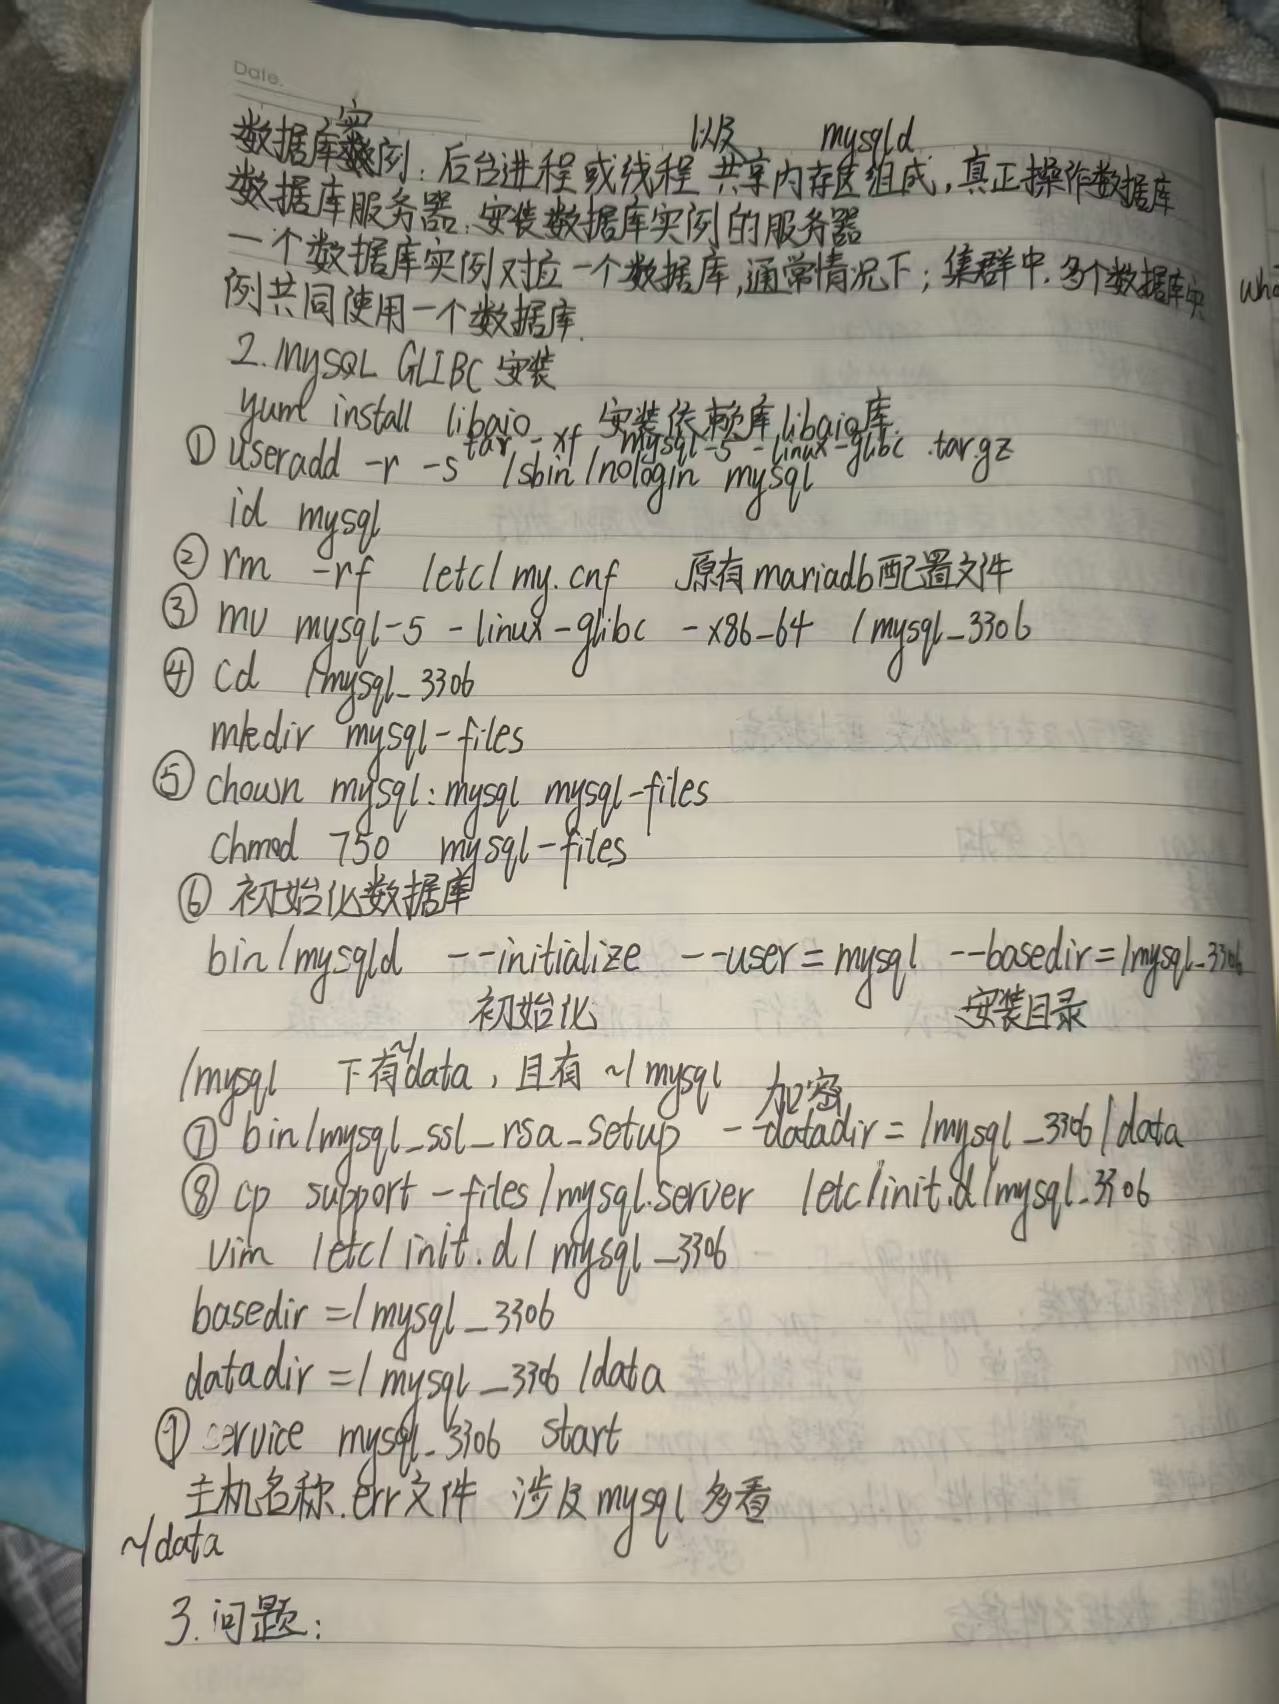 Date.
数据库实例：后台进程或线程以及共享内存区组成，mysqld真正操作数据库
数据库服务器：安装数据库实例的服务器
一个数据库实例对应一个数据库，通常情况下；集群中，多个数据库实
例共同使用一个数据库.
2.MySQL GLIBC 安装
yum install libaio 安装依赖库libaio库.
tar -xf mysql-5 -linux-glibc .tar.gz
① useradd -r -s /sbin/nologin mysql
id mysql
② rm -rf /etc/my.cnf 原有mariadb配置文件
③ mv mysql-5 -linux-glibc -x86_64 /mysql_3306
④ cd /mysql_3306
mkdir mysql-files
⑤ chown mysql:mysql mysql-files
chmod 750 mysql-files
⑥ 初始化数据库
bin/mysqld --initialize --user=mysql --basedir=/mysql_3306
初始化 安装目录
/mysql 下有~/data，且有 ~/mysql
加密
⑦ bin/mysql_ssl_rsa_setup --datadir=/mysql_3306/data
⑧ cp support-files/mysql.server /etc/init.d/mysql_3306
vim /etc/init.d/mysql_3306
basedir=/mysql_3306
datadir=/mysql_3306/data
⑨ service mysql_3306 start
主机名称.err文件 涉及mysql多看
~/data
3.问题：